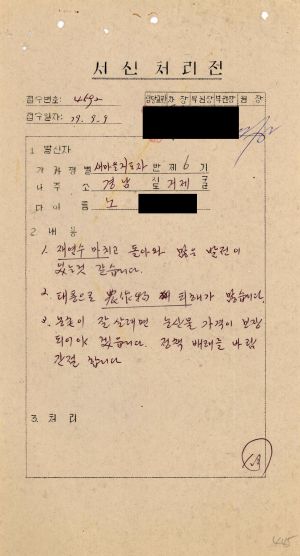 서 신 처 리 전
접수번호: 4692
접수일자: 79. 9. 9
담당 과 장 부원장 원 장
1. 발신자
가 과 정 별 새마을지도자 반 제 6 기
나 주 소 경남 시도 거제 군
다 이 름 노
2. 내 용
1. 재연수 마치고 돌아와 많은 발전이
있는것 같습니다.
2. 태풍으로 農作物 피해가 많습니다.
3. 농촌이 잘 살려면 농산물 가격이 보장
되어야 겠읍니다. 정책 배려를 바람
간절 합니다
3. 처 리
445